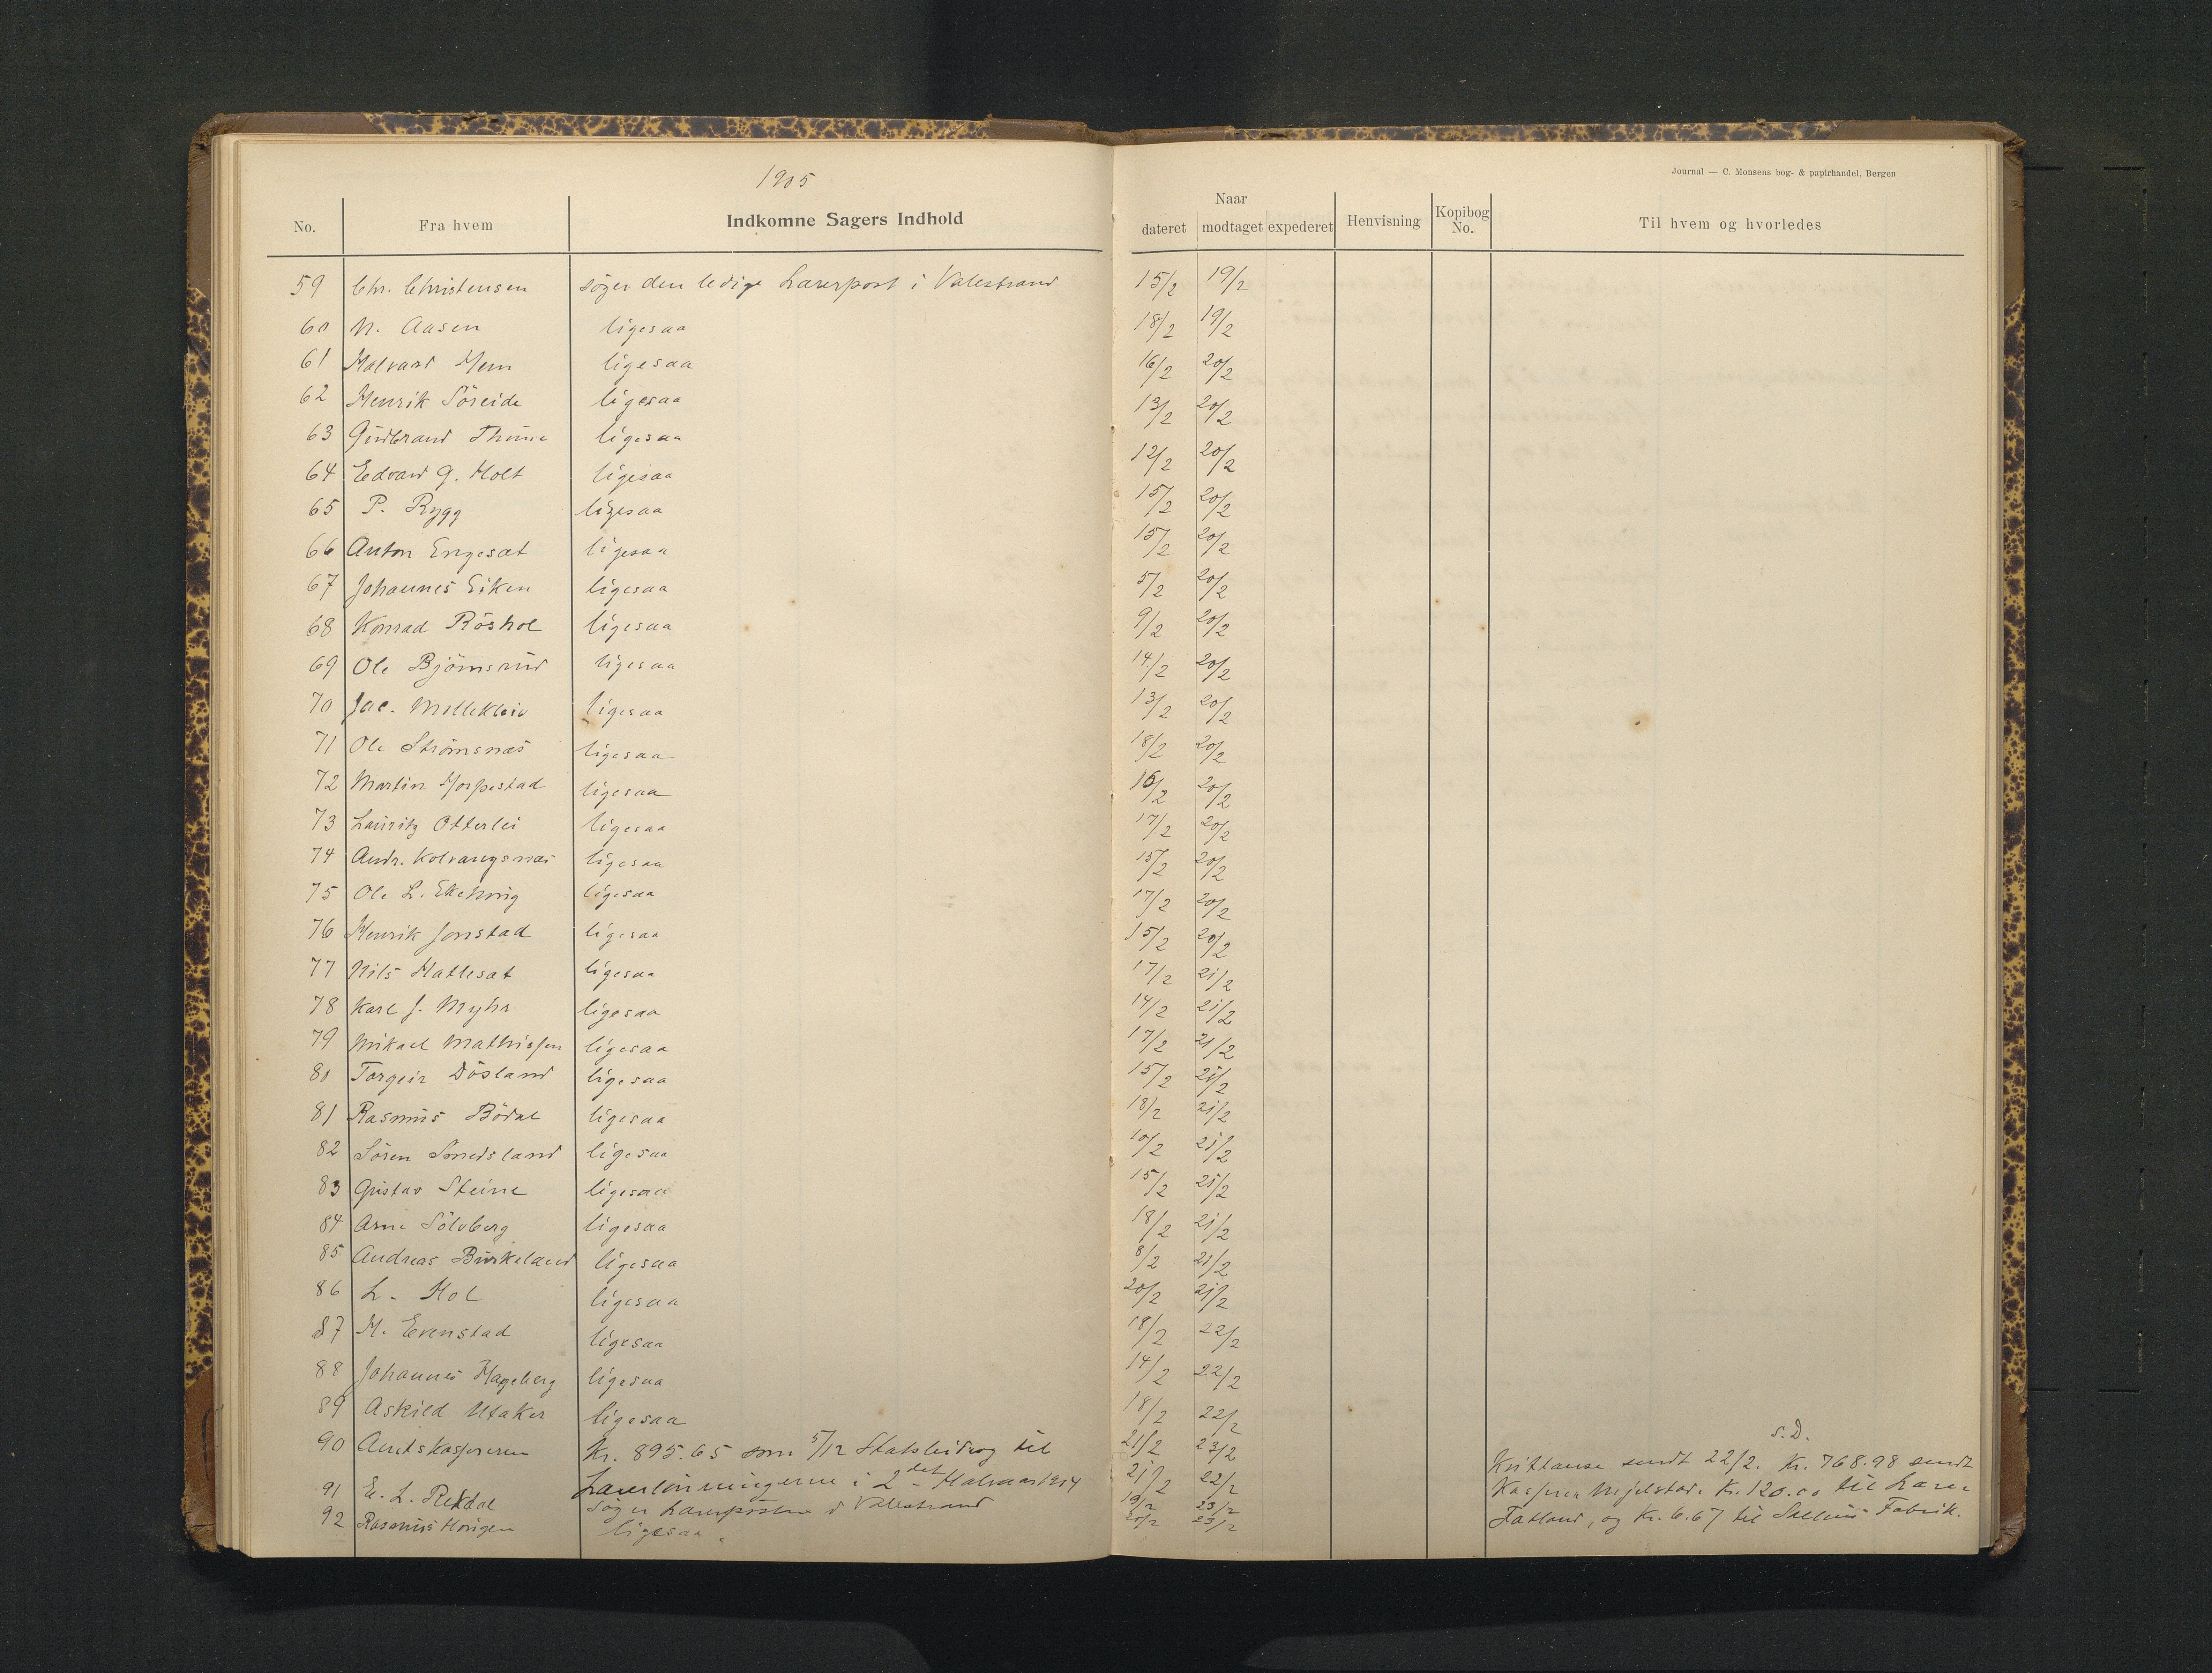 1905
Journal — C. Monsens bog- & papirhandel, Bergen
No. Fra hvem Indkomne Sagers Indhold Naar dateret modtaget expederet Henvisning Kopibog No. Til hvem og hvorledes
59 Chr. Christensen söger den ledige Lærerpost i Valestrand 15/2 19/2
60 N. Aasen ligesaa 18/2 19/2
61 Halvard Hem ligesaa 16/2 20/2
62 Henrik Söreide ligesaa 13/2 20/2
63 Gudbrand Thune ligesaa
64 Edvard G. Holt ligesaa 12/2 20/2
65 P. Rygg ligesaa 15/2 20/2
66 Anton Engesæt ligesaa 15/2 20/2
67 Johannes Eiken ligesaa 5/2 20/2
68 Konrad Röshol ligesaa 9/2 20/2
69 Ole Björnsrud ligesaa 14/2 20/2
70 Jac. ligesaa 13/2 20/2
71 Ole Strömsnæs ligesaa 18/2 20/2
72 Martin Horpestad ligesaa 16/2 20/2
73 Lauritz Otterlei ligesaa 17/2 20/2
74 Andr. Kolvangsnæs ligesaa 15/2 20/2
75 Ole L. ligesaa 17/2 20/2
76 Henrik Jonstad ligesaa 15/2 20/2
77 Nils Hatlesæt ligesaa 17/2 21/2
78 Karl J. Myhr ligesaa 14/2 21/2
79 Mikael Mathissen ligesaa 17/2 21/2
80 Torgeir Dösland ligesaa 15/2 21/2
81 Rasmus Bödal ligesaa 18/2 21/2
82 Sören Smedsland ligesaa 10/2 21/2
83 Gustav Steine ligesaa 15/2 21/2
84 Arne Sölvberg ligesaa 18/2 21/2
85 Andreas Birkeland ligesaa 8/2 21/2
86 L. Hol ligesaa 20/2 21/2
87 H. Evenstad ligesaa 18/2 22/2
88 Johannes Hageberg ligesaa 14/2 22/2
89 Askild Utaker ligesaa 18/2 22/2
s.D.
90 Amtskassereren Kr. 895.65 som 5/12 Statsbidrag til 21/2 23/2 Kvittanse sendt 22/2. Kr. 768.98 sendt
Lærerlönningerne i 2det Halvaar 1904 21/2 22/2 Kasserer Kr. 120.00 til Lærer
91 E. L. Rekdal söger Lærerposten i Valestrand 19/2 23/2
92 Rasmus Horigen ligesaa. 20/2 23/2 Tatland, og Kr. 6.67 til Fabrik.